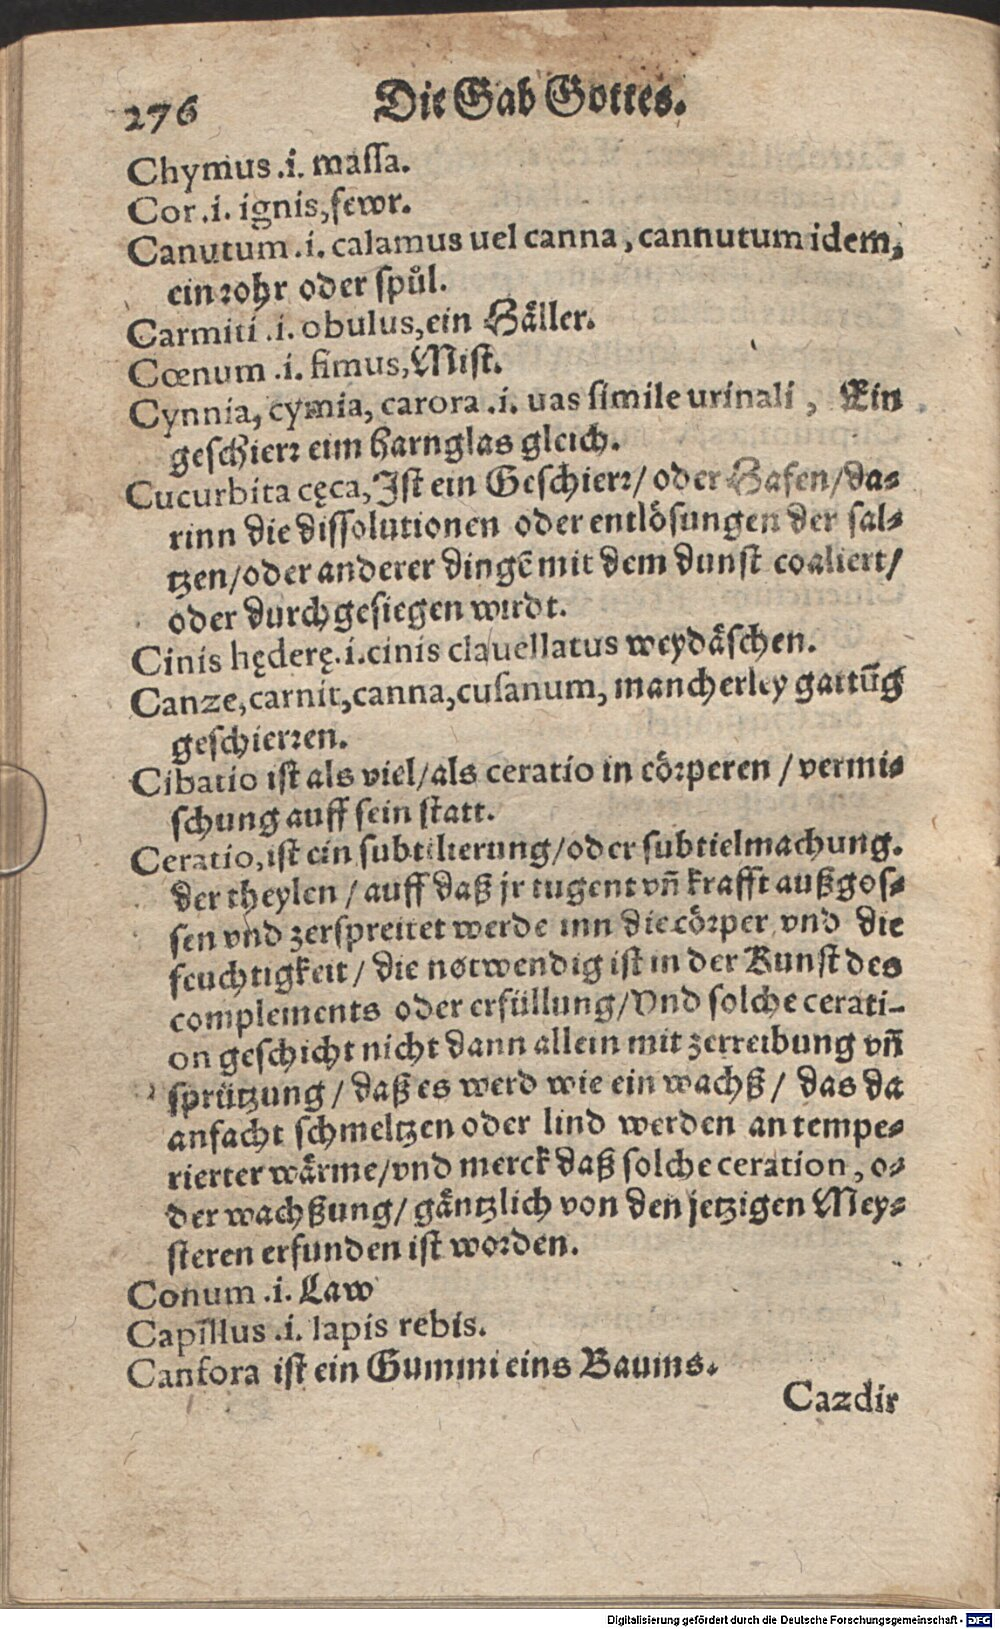 276 Die Gab Gottes.
Chymus .i. maſſa.
Cor .i. ignis, fewr.
Canutum .i. calamus uel canna, cannutum idem,
ein rohr oder ſpůl.
Carmiti .i. obulus, ein Häller.
Cœnum .i. fimus, Miſt.
Cynnia, cymia, carora .i. uas ſimile urinali, Ein
geſchierr eim harnglas gleich.
Cucurbita cęca, Iſt ein Geſchierr/ oder Hafen/ da⸗
rinn die diſſolutionen oder entlöſungen der ſal⸗
tzen/ oder anderer dingẽ mit dem dunſt coaliert/
oder durchgeſiegen wirdt.
Cinis hęderę .i. cinis clauellatus weydäſchen.
Canze, carnit, canna, cuſanum, mancherley gattũg
geſchierren.
Cibatio iſt als viel/ als ceratio in cörperen / vermi⸗
ſchung auff ſein ſtatt.
Ceratio, iſt ein ſubtilierung/ oder ſubtielmachung.
der theylen / auff daß jr tugent vñ krafft außgoſ⸗
ſen vnd zerſpreitet werde inn die cörper vnd die
feuchtigkeit / die notwendig iſt in der Kunſt des
complements oder erfüllung/ Vnd ſolche cerati-
on geſchicht nicht dann allein mit zerreibung vñ
ſprützung / daß es werd wie ein wachß / das da
anfacht ſchmeltzen oder lind werden an tempe⸗
rierter wärme/ vnd merck daß ſolche ceration, o⸗
der wachßung/ gäntzlich von den jetzigen Mey⸗
ſteren erfunden iſt worden.
Conum .i. Law
Capillus .i. lapis rebis.
Canfora iſt ein Gummi eins Baums.
Cazdir
Digitalisierung gefördert durch die Deutsche Forschungsgemeinschaft - DFG